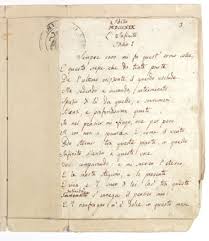 MDCCCXIX
L'Infinito
Idillio I
Sempre caro mi fu quest'ermo colle,
E questa siepe, che da tanta parte
De l'ultimo orizzonte il guardo esclude.
Ma sedendo e mirando,
Spazio di là da quella, e sovrumani
Silenzi, e profondissima quiete
Io nel pensier mi fingo, ove per poco
Il cor non si spaura. E come il vento
Odo stormir tra queste piante, io quello
Infinito silenzio a questa voce
Vo comparando: e mi sovvien l'eterno,
E le morte stagioni, e la presente
E viva, e 'l suon di lei. Così tra questa
s'annega il pensier mio:
E 'l naufragar m'è dolce in questo mare.